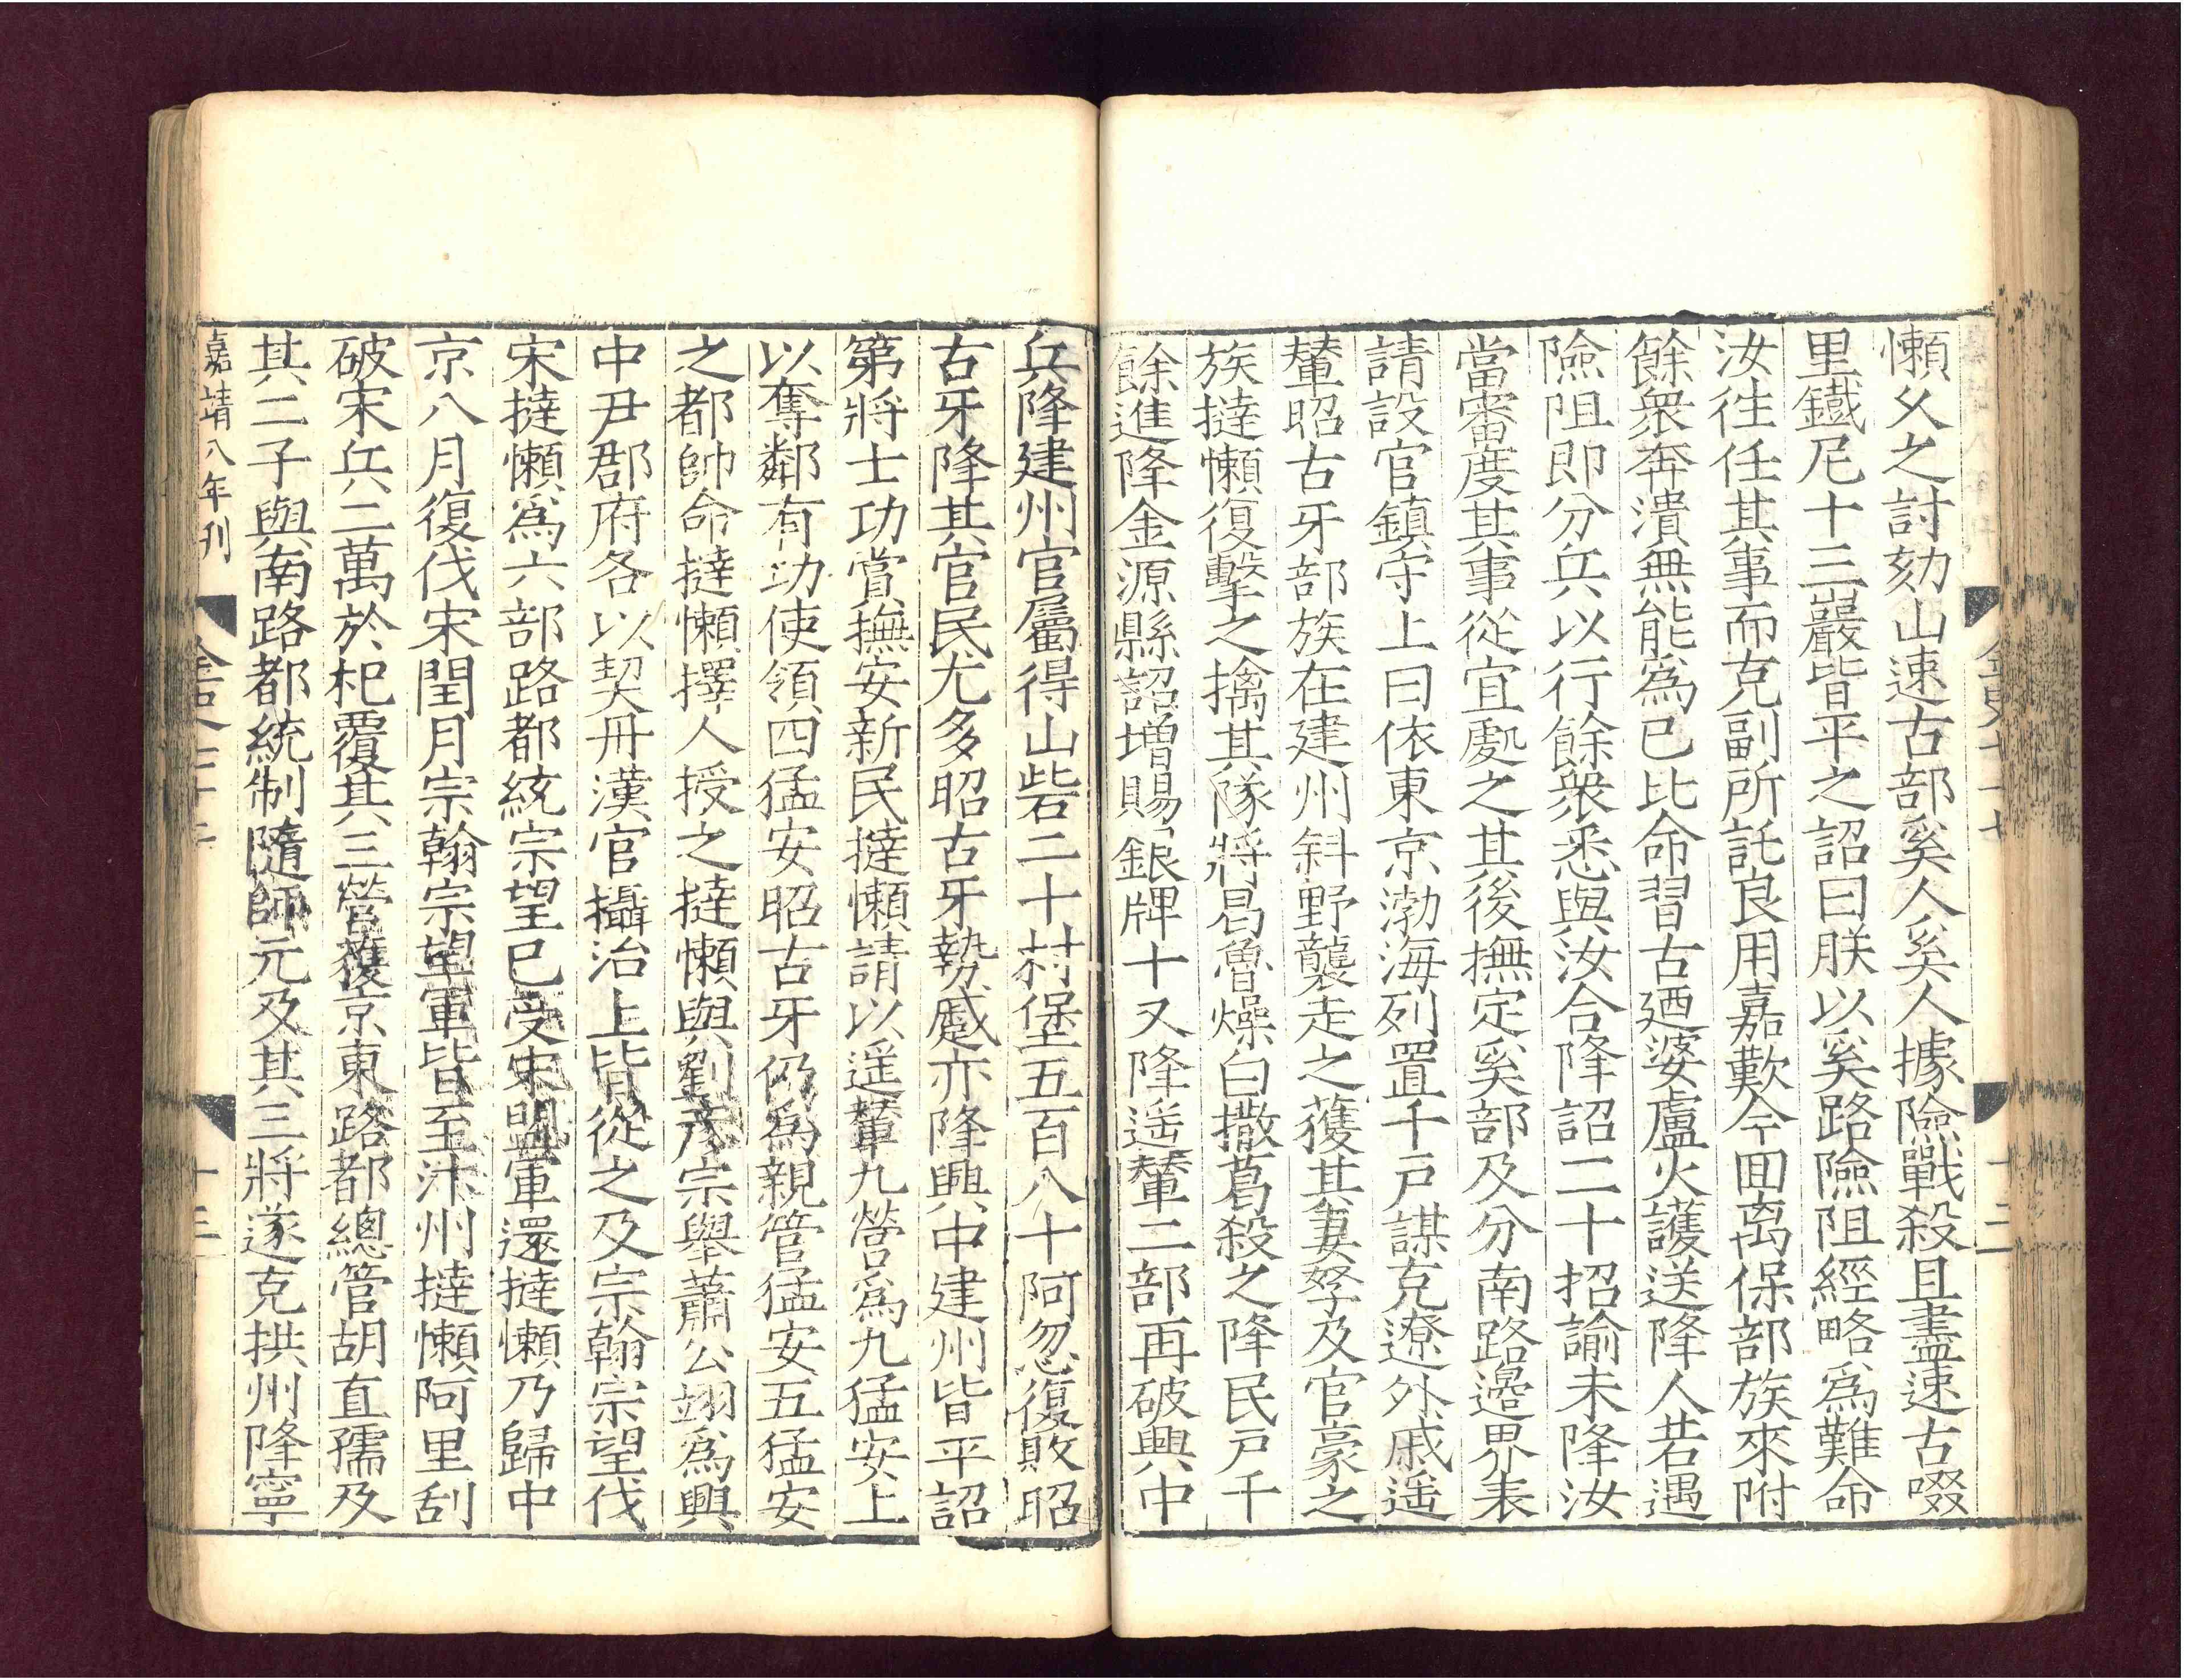 懶久之討劾山速古部奚人奚人據險戰殺且盡速古啜
里鐵尼十三巖皆平之詔曰朕以奚路險阻經略爲難命
汝往任其事而克副所託良用嘉歎今囬离保部族來附
餘衆奔潰無能爲已比命習古廼婆盧火護送降人若遇
險阻即分兵以行餘衆悉與汝合降詔二十招諭未降汝
當審度其事從宜處之其後撫定奚部及分南路邊界表
請設官鎮守上曰依東京渤海列置千戸謀克遼外戚遥
輦昭古牙部族在建州斜野襲走之獲其妻孥及官豪之
族撻懶復擊之擒其隊將曷魯燥白撒葛殺之降民戸千
餘進降金源縣詔增賜銀牌十又降遥輦二部再破興中
兵降建州官屬得山砦二十村堡五百八十阿忽復敗昭
古牙降其官民尤多昭古牙勢蹙亦降興中建州皆平詔
第將士功賞撫安新民撻懶請以遥輦九營爲九猛安上
以奪鄰有功使領四猛安昭古牙仍爲親管猛安五猛安
之都帥命撻懶擇人授之撻懶與劉彥宗舉蕭公翊爲興
中尹郡府各以契丹漢官攝治上皆從之及宗翰宗望伐
宋撻懶爲六部路都統宗望已受宋盟軍還撻懶乃歸中
京八月復伐宋閏月宗翰宗望軍皆至汴州撻懶阿里刮
破宋兵二萬於杞覆其三營獲京東路都總管胡直孺及
其二子與南路都統制隨師元及其三將遂克拱州降寧
嘉靖八年刊